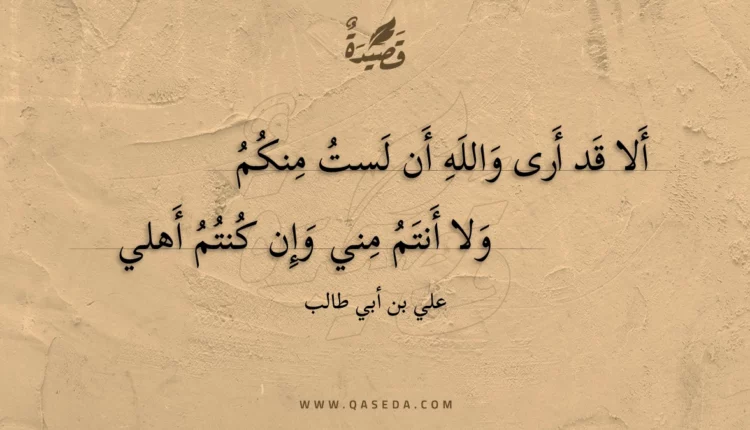 قَصِيْدَةٌ
أَلا قَد أَرى وَاللَهِ أَن لَستُ مِنكُمُ
وَلا أَنتَمُ مِني وَإِن كُنتُمُ أَهلي
علي بن أبي طالب
WWW.QASEDA.COM